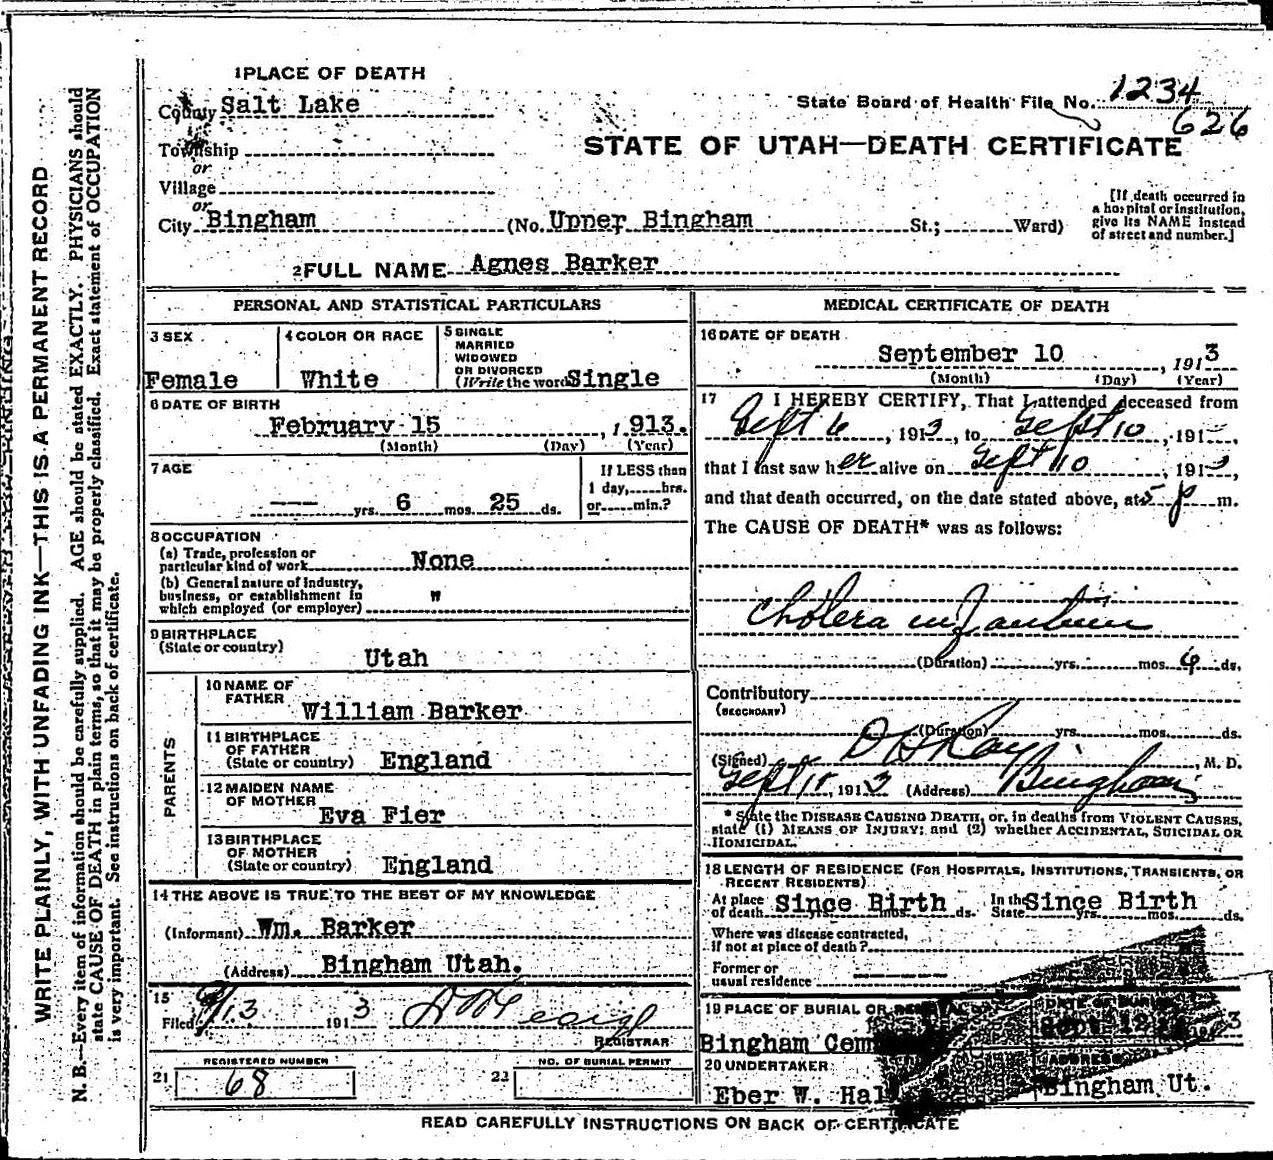 1 PLACE OF DEATH
County Salt Lake
State Board of Health File No. 1234
626
Township
or
STATE OF UTAH—DEATH CERTIFICATE
Village
or
City Bingham (No. Upper Bingham St.; Ward)
[If death occurred in
a hospital or institution,
give its NAME instead
of street and number.]
2 FULL NAME Agnes Barker
PERSONAL AND STATISTICAL PARTICULARS
3 SEX
Female
4 COLOR OR RACE
White
5 SINGLE
MARRIED
WIDOWED
OR DIVORCED
(Write the word) Single
6 DATE OF BIRTH
February 15, 1913.
(Month) (Day) (Year)
7 AGE
— yrs. 6 mos. 25 ds.
If LESS than
1 day, hrs.
or min.?
8 OCCUPATION
(a) Trade, profession or
particular kind of work None
(b) General nature of industry,
business, or establishment in "
which employed (or employer)
9 BIRTHPLACE
(State or country)
Utah
PARENTS
10 NAME OF
FATHER
William Barker
11 BIRTHPLACE
OF FATHER
(State or country) England
12 MAIDEN NAME
OF MOTHER
Eva Fier
13 BIRTHPLACE
OF MOTHER
(State or country) England
14 THE ABOVE IS TRUE TO THE BEST OF MY KNOWLEDGE
(Informant) Wm. Barker
(Address) Bingham Utah.
15
Filed 9/13 1913
REGISTRAR
REGISTERED NUMBER
21 68
NO. OF BURIAL PERMIT
22
MEDICAL CERTIFICATE OF DEATH
16 DATE OF DEATH
September 10, 1913
(Month) (Day) (Year)
17 I HEREBY CERTIFY, That I attended deceased from
Sept 6, 1913, to Sept 10, 191
that I last saw her alive on Sept 10, 1913,
and that death occurred, on the date stated above, at 5 p m.
The CAUSE OF DEATH* was as follows:
Cholera infantum
(Duration) yrs. mos. 4 ds.
Contributory
(SECONDARY)
(Duration) yrs. mos. ds.
(Signed) D H Ray, M. D.
Sept 1913 (Address) Bingham
* State the DISEASE CAUSING DEATH, or, in deaths from VIOLENT CAUSES,
state (1) MEANS OF INJURY; and (2) whether ACCIDENTAL, SUICIDAL OR
HOMICIDAL.
18 LENGTH OF RESIDENCE (FOR HOSPITALS, INSTITUTIONS, TRANSIENTS, OR
RECENT RESIDENTS)
At place
of death Since Birth yrs. mos. ds. In the
State Since Birth yrs. mos. ds.
Where was disease contracted,
if not at place of death?
Former or
usual residence
19 PLACE OF BURIAL OR REMOVAL
DATE OF BURIAL
Bingham Cem
Sept 12 1913
20 UNDERTAKER
ADDRESS
Eber W. Hal
Bingham Ut.
READ CAREFULLY INSTRUCTIONS ON BACK OF CERTIFICATE
WRITE PLAINLY, WITH UNFADING INK—THIS IS A PERMANENT RECORD
N. B.—Every item of information should be carefully supplied. AGE should be stated EXACTLY. PHYSICIANS should
state CAUSE OF DEATH in plain terms, so that it may be properly classified. Exact statement of OCCUPATION
is very important. See instructions on back of certificate.